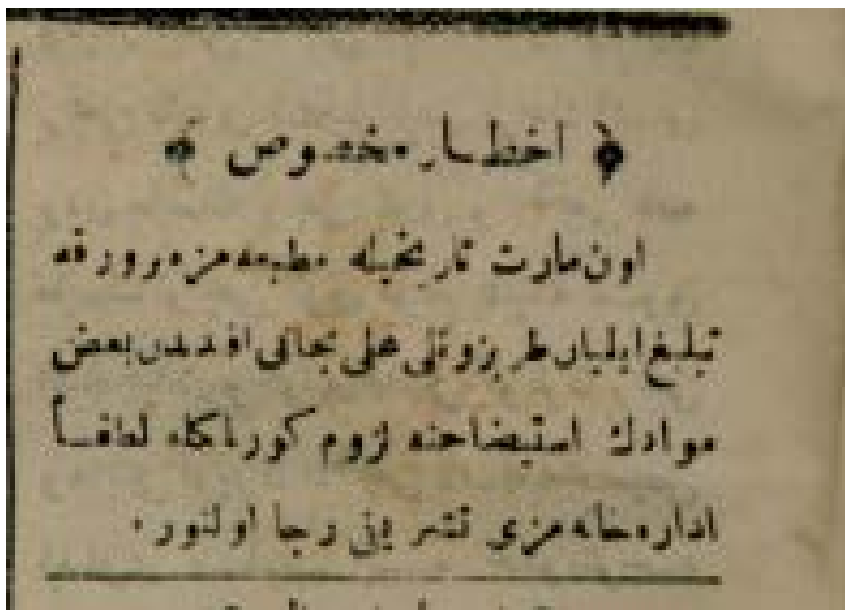 ﴿ اخطار مخصوص ﴾
اون مارت تاريخيله مطبعه مزه بر ورقه
تبليغ ايليان طربزونلى على نجاتى افنديدن بعض
موادك استيضاحنه لزوم كورلمكله لطفاً
اداره خانه مزى تشريفى رجا اولنور .